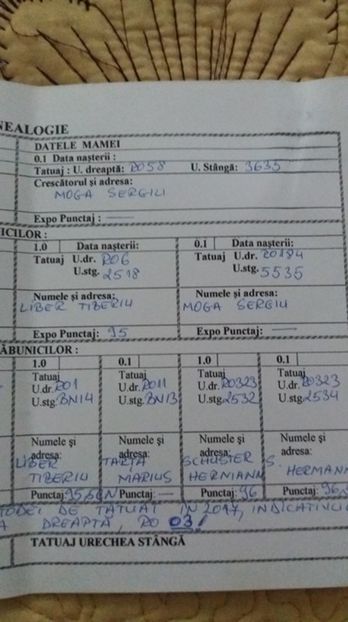 NEALOGIE
DATELE MAMEI
0.1 Data nașterii :
Tatuaj : U. dreaptă: RO58 U. Stângă: 3635
Crescătorul și adresa:
MOGA SERGIU
Expo Punctaj : —
ICILOR :
1.0 Data nașterii: 0.1 Data nașterii:
Tatuaj U.dr. RO6 Tatuaj U.dr. RO184
U.stg. 2518 U.stg. 5535
Numele și adresa: Numele și adresa:
LIBER TIBERIU MOGA SERGIU
Expo Punctaj: 95 Expo Punctaj: —
ĂBUNICILOR :
1.0 0.1 1.0 0.1
Tatuaj Tatuaj Tatuaj Tatuaj
U.dr. RO1 U.dr. RO11 U.dr. RO323 U.dr. RO323
U.stg. BN14 U.stg. BN13 U.stg. 2532 U.stg. 2534
Numele și Numele și Numele și Numele și
adresa: adresa: adresa: adresa:
LIBER TARȚA SCHUSTER S.
TIBERIU MARIUS HERMANN HERMANN
Punctaj: Punctaj: — Punctaj: 96 Punctaj:
DE TATUAJ IN 2017, INDICATIVUL
A DREAPTA, RO 03!
TATUAJ URECHEA STÂNGĂ